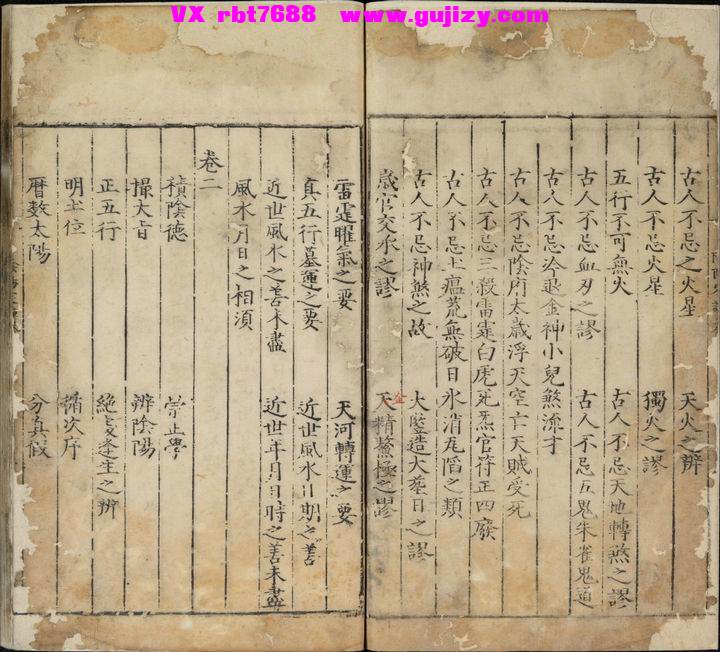 VX rbt7688 www.gujizy.com
古人不忌之火星 天火之辨
古人不忌火星 獨火之謬
五行不可無火 古人不忌天地轉煞之謬
古人不忌血刃之謬 古人不忌五鬼朱雀鬼道
古人不忌冷退金神小兒煞流才
古人不忌陰府太歲浮天空亡天賊受死
古人不忌三殺雷霆白虎死炁官符正四廢
古人不忌土瘟荒無破日氷消瓦陷之類
古人不忌神煞之故 大鑒造大塟日之謬
歲官交承之謬 天精鰲極之謬
金
雷霆曜氣之要 天河轉運之要
真五行墓運之要 近世風水日期之善
近世風水之善未盡 近世年月日時之善未盡
風水月日之相須
卷二
積陰德 崇正學
撮大旨 辨陰陽
正五行 之辨
明十位 循次序
曆数太陽 分真假